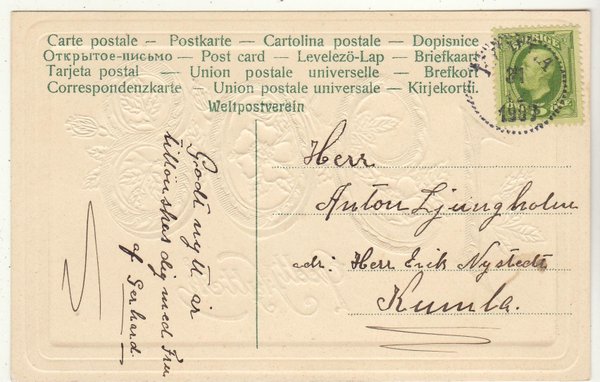 Carte postale – Postkarte – Cartolina postale – Dopisnice
Открытое-письмо – Post card – Levelező-Lap – Briefkaart
Tarjeta postal – Union postale universelle – Brefkort
Correspondenzkarte – Union postale universale – Kirjekortti.
Weltpostverein
Godt nytt år
tillönskas dig med Fru
af Gerhard.
Herr
Anton Ljungholm
adr: Herr Erik Nystedt
Kumla.